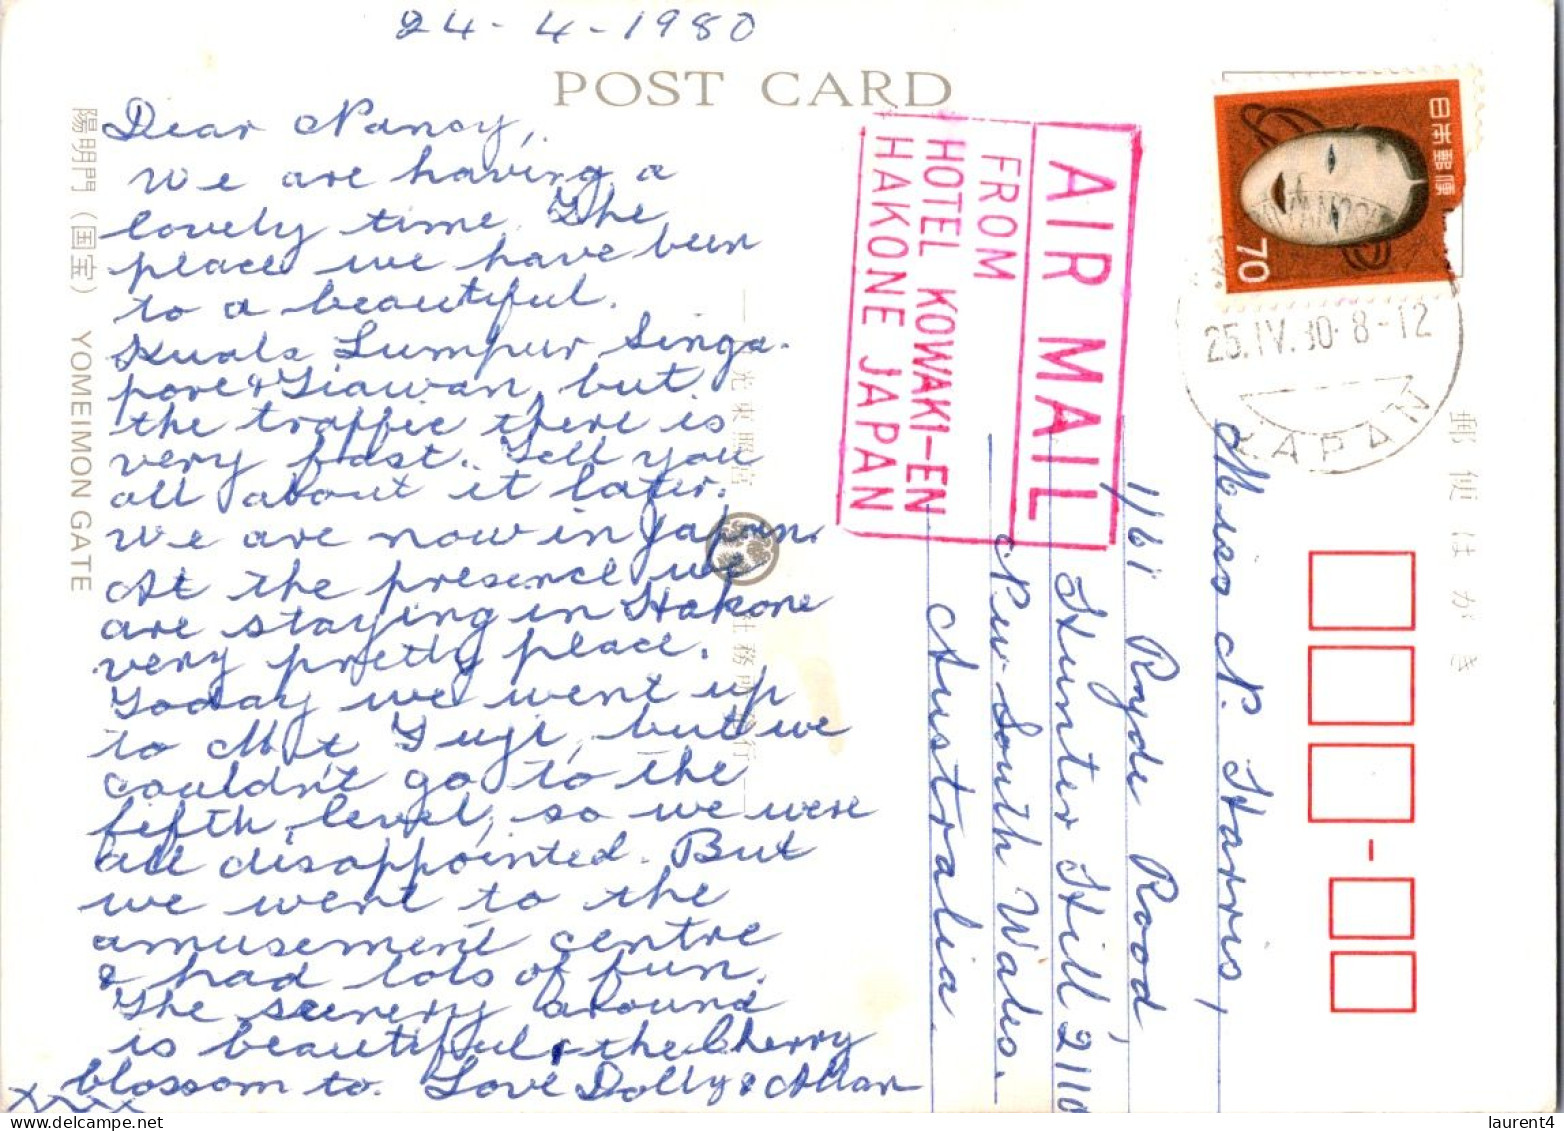 24-4-1980
POST CARD
Dear Nancy,
We are having a
lovely time. The
place we have been
to a beautiful.
Kuala Lumpur Singa-
pore & Tiawan, but
the traffic there is
very fast. Tell you
all about it later.
We are now in Japan.
At the presence we
are staying in Hakone
very pretty place.
Today we went up
to Mt Fuji, but we
couldn't go to the
fifth level, so we were
all disappointed. But
we went to the
amusement centre
& had lots of fun.
The scenery around
is beautiful & the Cherry
blossom to. Love Dolly & Allan
xxxx
陽明門（国宝） YOMEIMON GATE
光東照宮
社務所
行
AIR MAIL
FROM
HOTEL KOWAKI-EN
HAKONE JAPAN
日本郵便
70
25.IV.80. 8-12
JAPAN
郵便はがき
Miss N. Harris,
1/161 Ryde Road
Hunter Hill 2110
New South Wales.
Australia.
laurent4